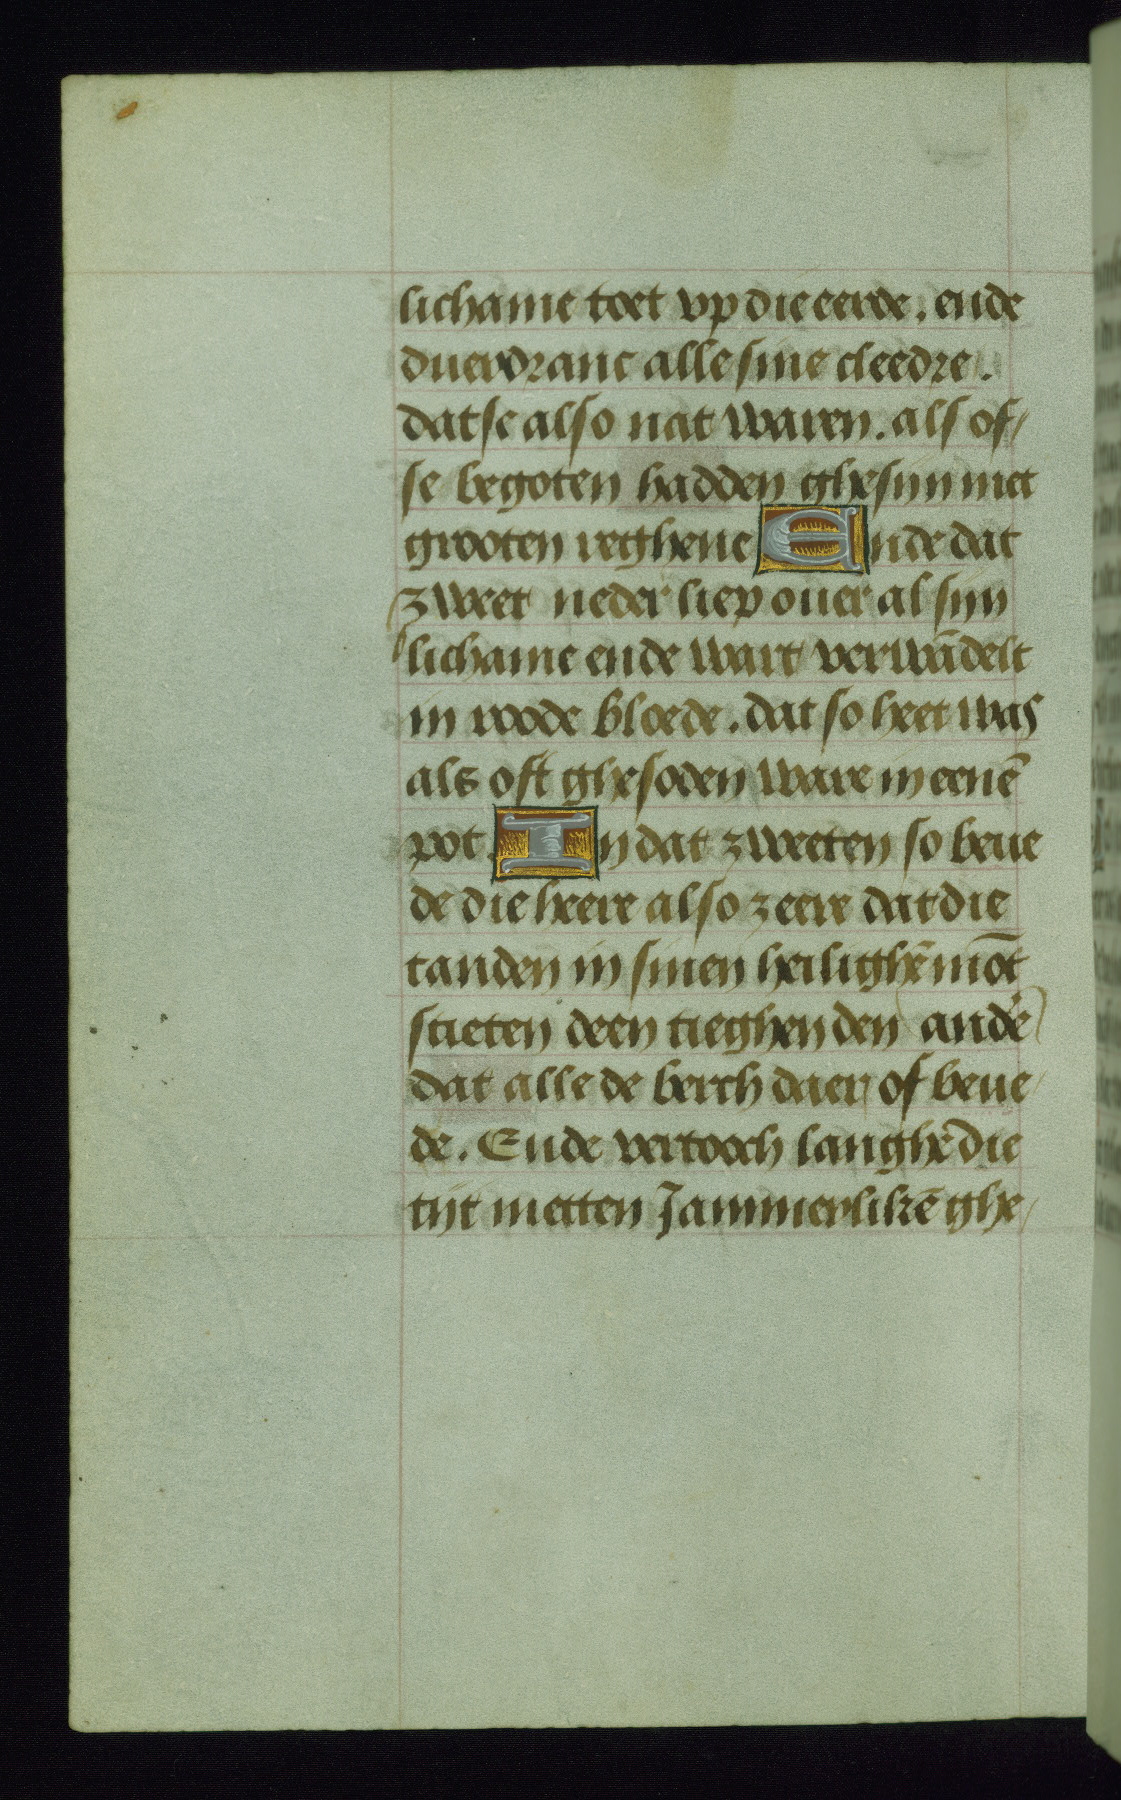 lichame toet vp die eerde. ende
duerdranc alle sine cleedre.
datse also nat waren. als of
se begoten hadden ghesijn met
grooten reghene Ende dat
zweet neder liep ouer al sijn
lichame ende wart verwādelt
in roode bloede. dat so heet was
als oft ghesoden ware in eenē
pot. In dat zweeten so beue
de die heere also zeere dat die
tanden in sinen heilighē mōt
stieten deen tieghen den andē
dat alle de berch daer of beue
de. Ende vertooch langhē die
tijt metten Jammerlikē ghe